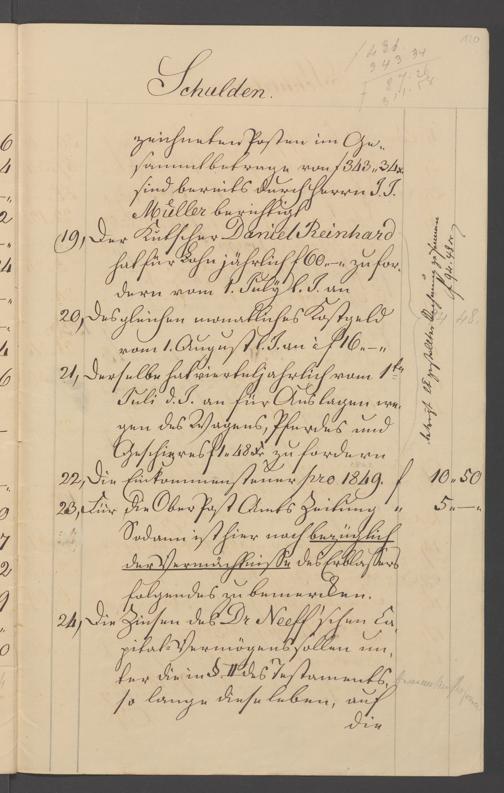 120
Schulden.
zeichneten Posten im Ge-
sammtbetrage von f 343 " 34 x
sind bereits durch Herrn J. J.
Müller berichtigt
19, Der Kutscher Daniel Reinhard
hat für Lohn jährlich f 60 " — zu for-
dern vom 1. July l. J. an
20, Desgleichen monatliches Kostgeld
vom 1. August l. J. an à f 16 " —
21, Derselbe hat vierteljährlich vom 1ten
Juli d. J. an für Auslagen we-
gen des Wagens, Pferdes und
Geschieres f 1 " 48 x zu fordern
22, Die Einkommensteuer pro 1849. f 10 " 50
23, Für die Ober Post Amts Zeitung " 5 " — "
Sodann ist hier noch bezüglich
der Vermächtnisse des Erblassers
folgendes zu bemerken.
24, Die Zinsen des Dr Neeff'schen Ca-
pital-Vermögens sollen un-
ter die in §. II des Testaments,
so lange dieselben, auf
die